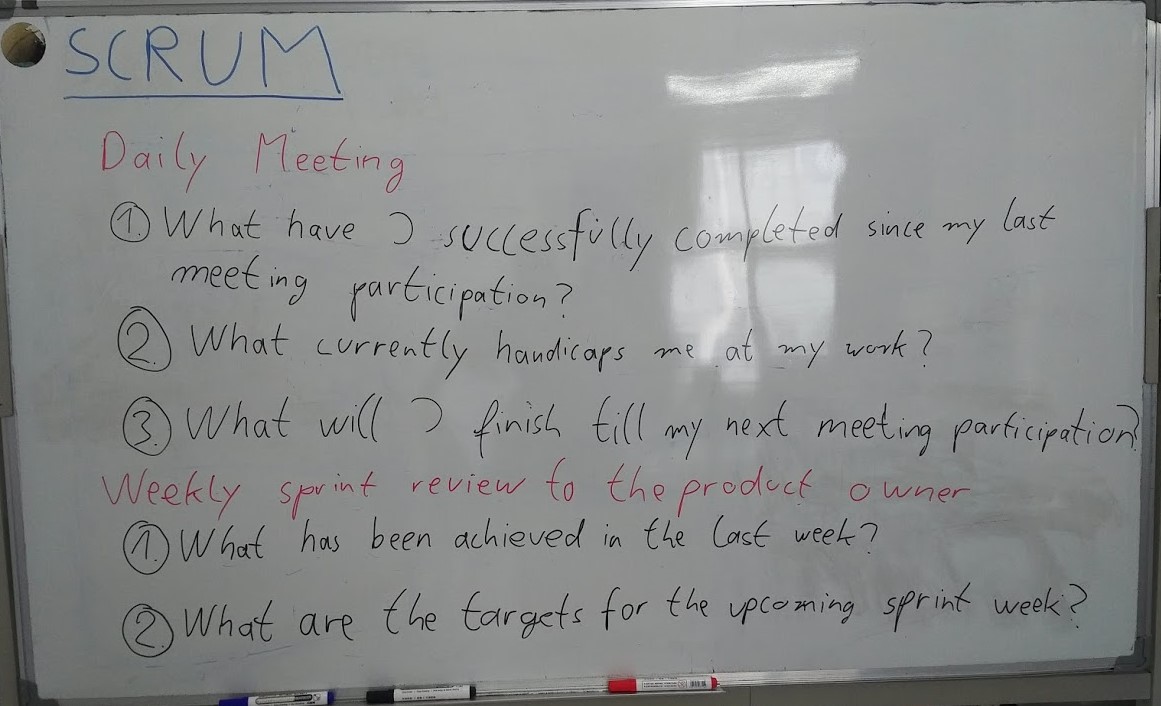 SCRUM
Daily Meeting
① What have I successfully completed since my last
meeting participation?
②. What currently handicaps me at my work?
③. What will I finish till my next meeting participation?
Weekly sprint review to the product owner
①. What has been achieved in the last week?
②. What are the targets for the upcoming sprint week?